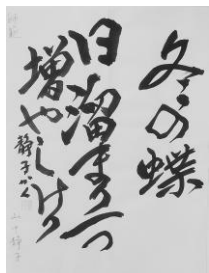 冬の蝶
日溜まり一つ
増やしけり
静子かく